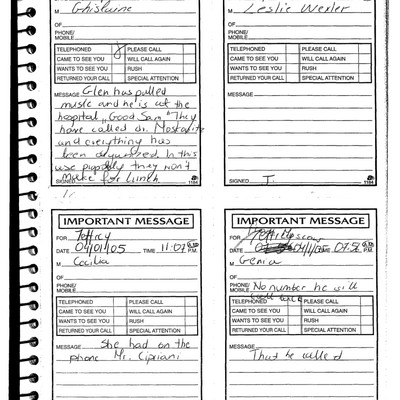 M Ghislaine
OF
PHONE/
MOBILE
TELEPHONED PLEASE CALL
CAME TO SEE YOU WILL CALL AGAIN
WANTS TO SEE YOU RUSH
RETURNED YOUR CALL SPECIAL ATTENTION
MESSAGE Glen has pulled
music and he is at the
hospital "Good Sam" They
have called dr. Moskowitz
and everything has
been organized. In this
use they won't
make for lunch.
SIGNED 1184
M Leslie Wexler
OF
PHONE/
MOBILE
TELEPHONED PLEASE CALL
CAME TO SEE YOU WILL CALL AGAIN
WANTS TO SEE YOU RUSH
RETURNED YOUR CALL SPECIAL ATTENTION
MESSAGE
SIGNED J. 1184
IMPORTANT MESSAGE
FOR Jeffrey
DATE 04/01/05 TIME 11:07 P.M.
M Cecilia
OF
PHONE/
MOBILE
TELEPHONED PLEASE CALL
CAME TO SEE YOU WILL CALL AGAIN
WANTS TO SEE YOU RUSH
RETURNED YOUR CALL SPECIAL ATTENTION
MESSAGE She had on the
phone Mr. Cipriani
IMPORTANT MESSAGE
FOR
DATE 04/1/05 TIME P.M.
M Genia
OF
PHONE/
MOBILE No number he will
call
TELEPHONED PLEASE CALL
CAME TO SEE YOU WILL CALL AGAIN
WANTS TO SEE YOU RUSH
RETURNED YOUR CALL SPECIAL ATTENTION
MESSAGE
That he called